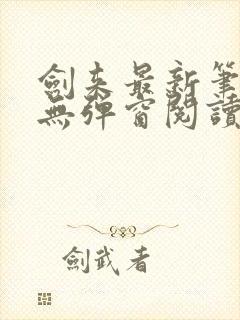 劍来最新筆
無彈窗閱讀
劍武者